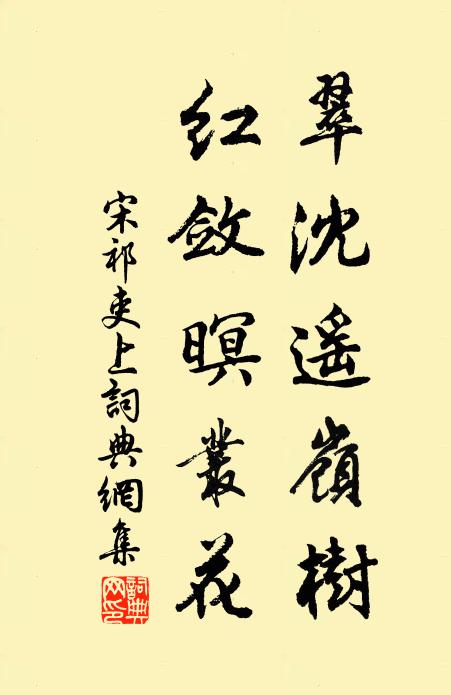 翠沈遥嶺樹
紅斂暝叢花
宋祁吏上詞典網集
詞典网印